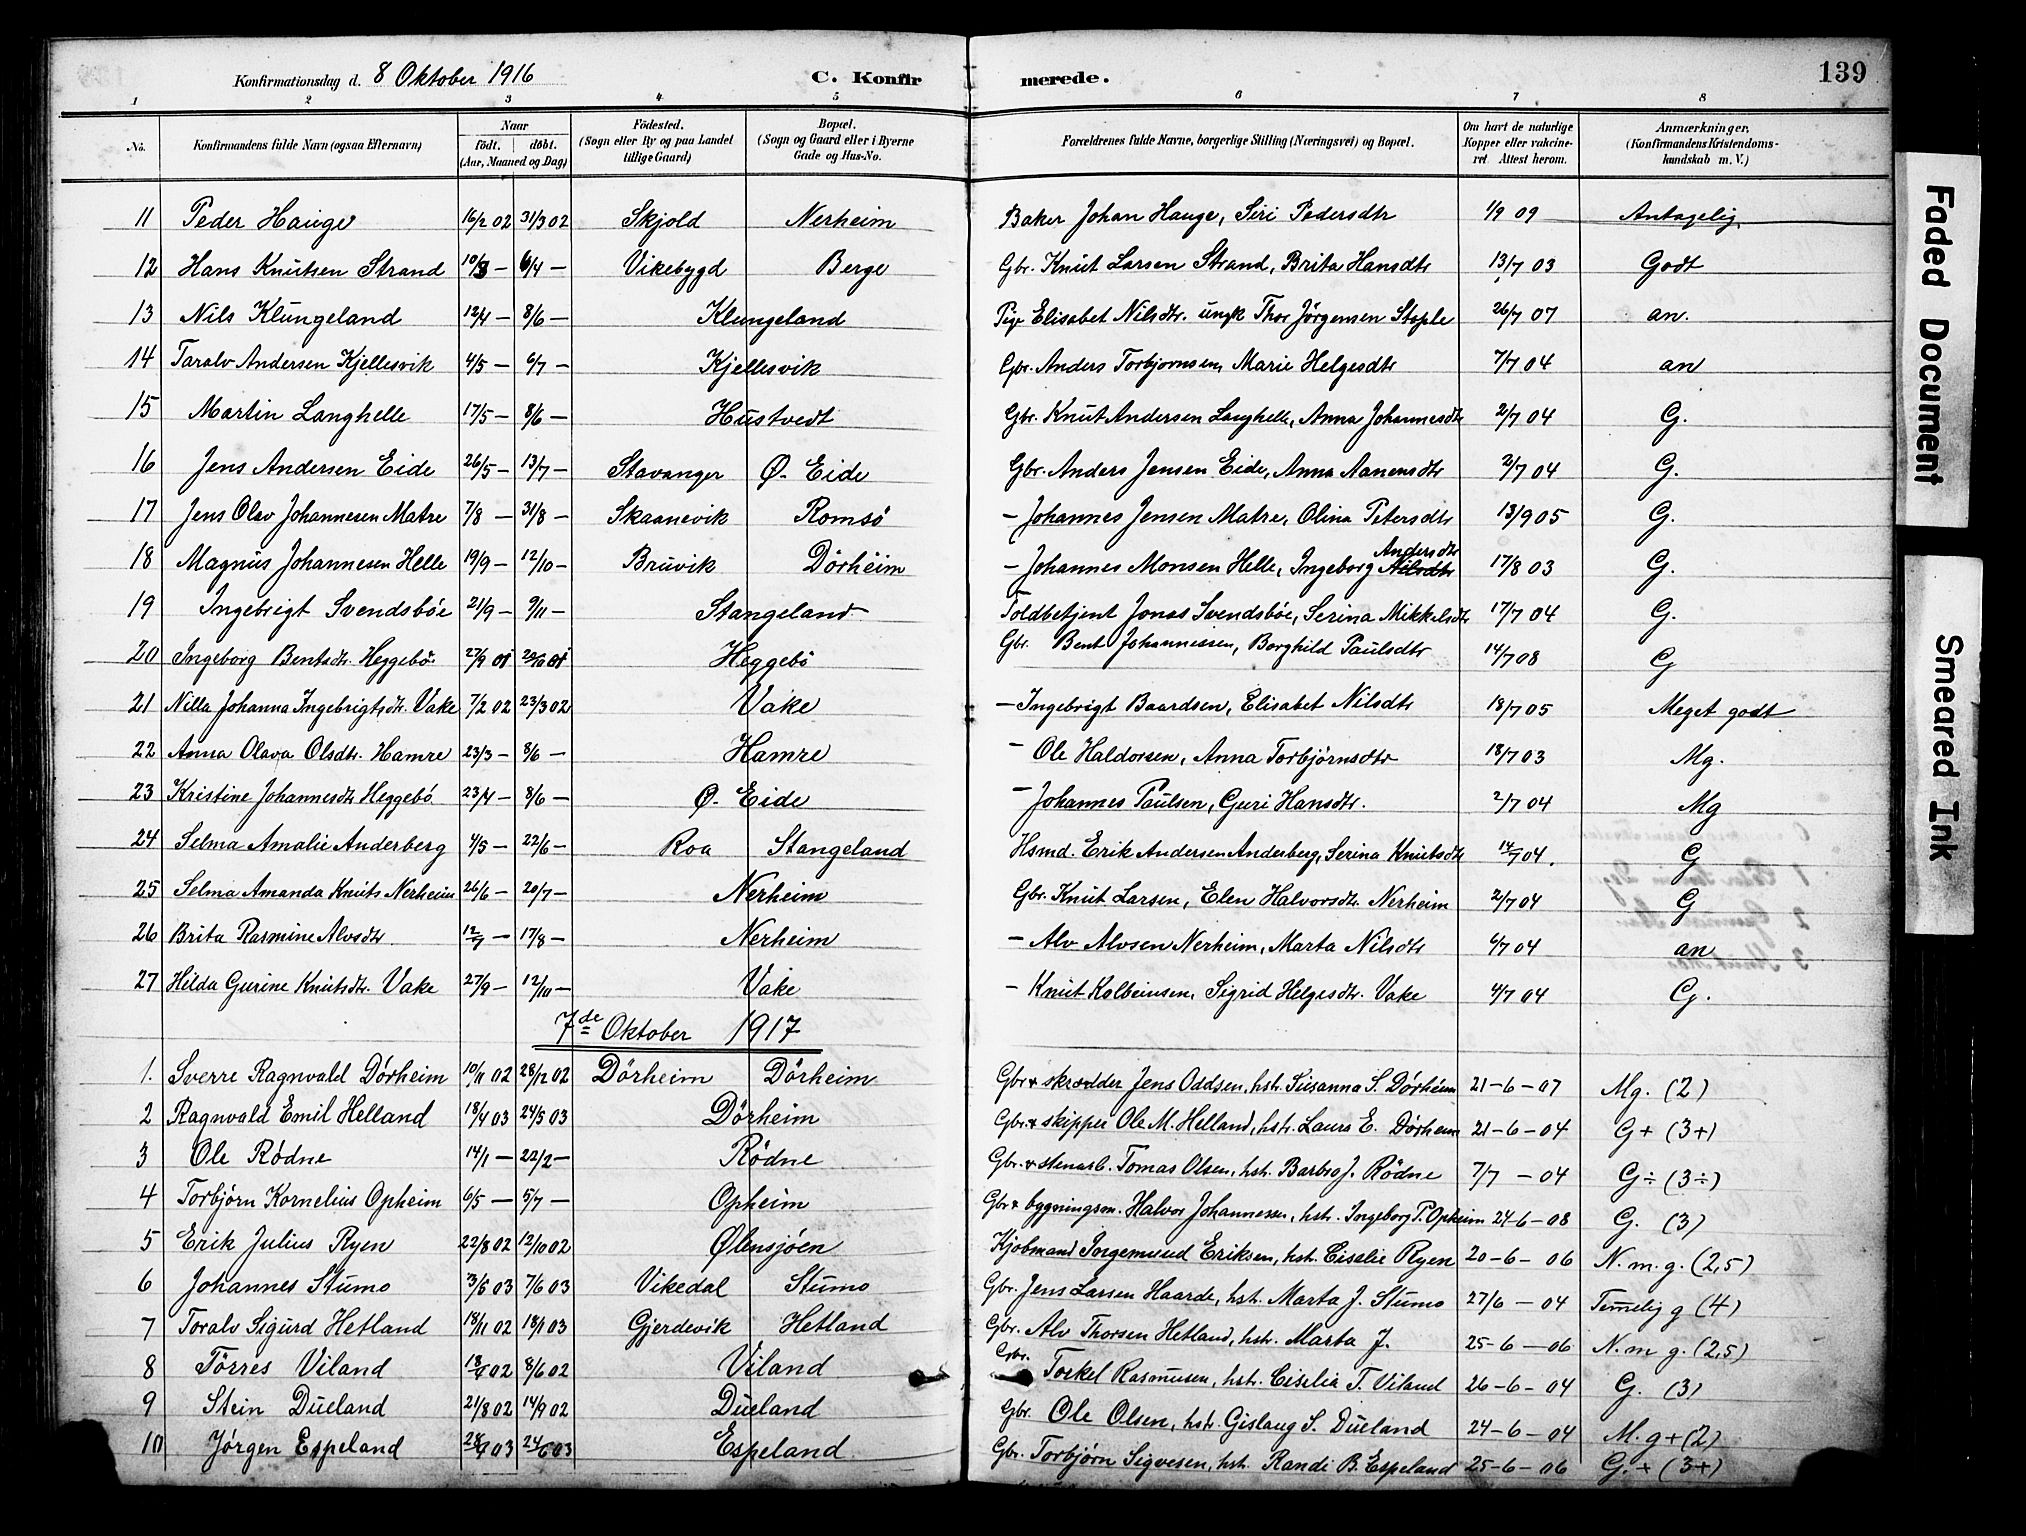 Konfirmationsdag d. 8 Oktober 1916 C. Konfirmerede. 139
1 2 3 4 5 6 7 8
No. Konfirmandens fulde Navn (ogsaa Efternavn) Naar født. døbt. (Aar, Maaned og Dag) Fødested. (Sogn eller By og paa Landet tillige Gaard) Bopæl. (Sogn og Gaard eller i Byerne Gade og Hus-No. Forældrenes fulde Navne, borgerlige Stilling (Næringsvei) og Bopæl. Om havt de naturlige Kopper eller vakcineret Attest herom. Anmærkninger, (Konfirmandens Kristendomskundskab m. V.)
11 Peder Hauge 16/2 02 31/3 02 Skjold Nerheim Baker Johan Hauge, Siri Pedersdtr 1/9 09 Antagelig
12 Hans Knutsen Strand 10/3 — 6/4 — Vikebygd Berge Gbr. Knut Larsen Strand, Brita Hansdtr 13/7 03 Godt
13 Nils Klungeland 12/4 — 8/6 — Klungeland Pige Elisabet Nilsdtr. ungk Thor Jørgensen Stople 26/7 07 an.
14 Taralv Andersen Kjellesvik 4/5 — 6/7 — Kjellesvik Gbr. Anders Torbjørnsen, Marie Helgesdtr 7/7 04 an
15 Martin Langhelle 17/5 — 8/6 — Hustvedt Gbr. Knut Andersen Langhelle, Anna Johannesdtr 2/7 04 G.
16 Jens Andersen Eide 26/5 — 13/7 — Stavanger Ø. Eide Gbr. Anders Jensen Eide, Anna Aanensdtr 2/7 04 G.
17 Jens Olav Johannesen Matre 7/8 — 31/8 — Skaanevik Romsö — Johannes Jensen Matre, Olina Petersdtr 13/9 05 G.
18 Magnus Johannesen Helle 19/9 — 12/10 — Bruvik Dörheim — Johannes Monsen Helle, Ingeborg Nilsdtr Andersdtr 17/8 03 G.
19 Ingebrigt Svendsböe 21/9 — 9/11 — Stangeland Toldbetjent Jonas Svendsböe, Serina Mikkelsdtr 17/7 04 G.
20 Ingeborg Bentsdtr. Heggebö 27/9 01 20/10 01 Heggebö Gbr. Bent Johannessen, Borghild Paulsdtr 14/7 08 G
21 Nilla Johanna Ingebrigtsdtr. Vake 7/2 02 23/3 02 Vake — Ingebrigt Baardsen, Elisabet Nilsdtr 18/7 05 Meget godt
22 Anna Olava Olsdtr. Hamre 23/3 — 8/6 — Hamre — Ole Haldorsen, Anna Torbjørnsdtr 18/7 03 Mg.
23 Kristine Johannesdtr Heggebö 23/4 — 8/6 — Ø. Eide — Johannes Paulsen, Guri Hansdtr. 2/7 04 Mg
24 Selma Amalie Anderberg 4/5 — 22/6 — Roa Stangeland Hsmd. Erik Andersen Anderberg, Serina Knutsdtr 14/7 04. G
25 Selma Amanda Knuts Nerheim 26/6 — 20/7 — Nerheim Gbr. Knut Larsen, Elen Halvorsdtr. Nerheim 2/7 04 G
26 Brita Rasmine Alvsdtr. 12/7 — 17/8 — Nerheim — Alv Alvsen Nerheim, Marta Nilsdtr 6/7 04 an
27 Hilda Gurine Knutsdtr. Vake 27/9 — 12/10 — Vake — Knut Kolbeinsen, Sigrid Helgesdtr. Vake 4/7 04 G.
7de Oktober 1917
1. Sverre Ragnvald Dörheim 10/11 02 28/12 02 Dörheim Dörheim Gbr + skrædder Jens Oddsen, hstr. Susanna S. Dörheim 21-6-07 Mg. (2)
2 Ragnvald Emil Helland 18/4 03 24/5 03 Dörheim Gbr. + skipper Ole M. Helland, hstr. Laura E. Dörheim 21-6-04 G+ (3+)
3 Ole Rödne 14/1 — 22/2 — Rödne Gbr. + stenarb. Tomas Olsen, hstr. Barbro J. Rödne 7/7 — 04 G÷ (3÷)
4 Torbjörn Kornelius Opheim 6/5 — 5/7 — Opheim Gbr + bygningsm. Halvor Johannessen, hstr. Ingeborg T. Opheim 24-6-08 G. (3)
5 Erik Julius Ryen 22/8 02 12/10 02 Ølensjøen Kjøbmand Ingemund Eriksen, hstr. Ciselie Ryen 20-6-06 N. m. g. (2,5)
6 Johannes Stumo 3/5 03 7/6 03 Vikedal Stumo Gbr. Jens Larsen Haarde, hstr. Marta J. Stumo 27/6 — 04 Temelig g (4)
7 Toralv Sigurd Hetland 18/11 02 18/1 03 Gjerdevik Hetland Gbr. Alv Thorsen Hetland, hstr. Marta J. 25-6-06 N. m g. (2,5)
8 Törres Viland 18/4 02 8/6 02 Viland Gbr. Torkel Rasmusen, hstr. Ciselia T. Viland 26-6-04 G. (3)
9 Stein Dueland 21/8 02 14/9 02 Dueland Gbr. Ole Olsen, hstr. Gislaug S. Dueland 24-6-04 M. g + (2)
10 Jørgen Espeland 28/4 03 24/6 03 Espeland Gbr. Torbjørn Sigvesen, hstr. Randi B. Espeland 25-6-06 G. + (3+)
Faded Document
Smeared Ink